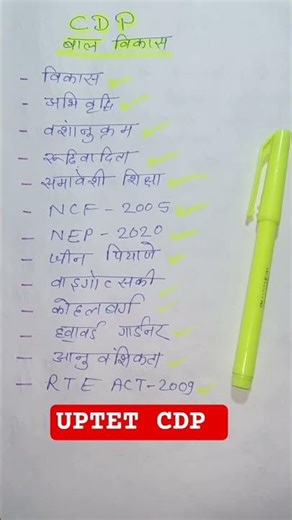 CDP
बाल विकास
- विकास
- अभि वृद्धि
- वंशानुक्रम
- रूढिवादिता
- समावेशी शिक्षा
- NCF - 2005
- NEP - 2020
- जीन पियाजे
- वाइगोटसकी
- कोहलबर्ग
- हावर्ड गार्डनर
- आनुवंशिकता
- RTE ACT-2009
UPTET CDP